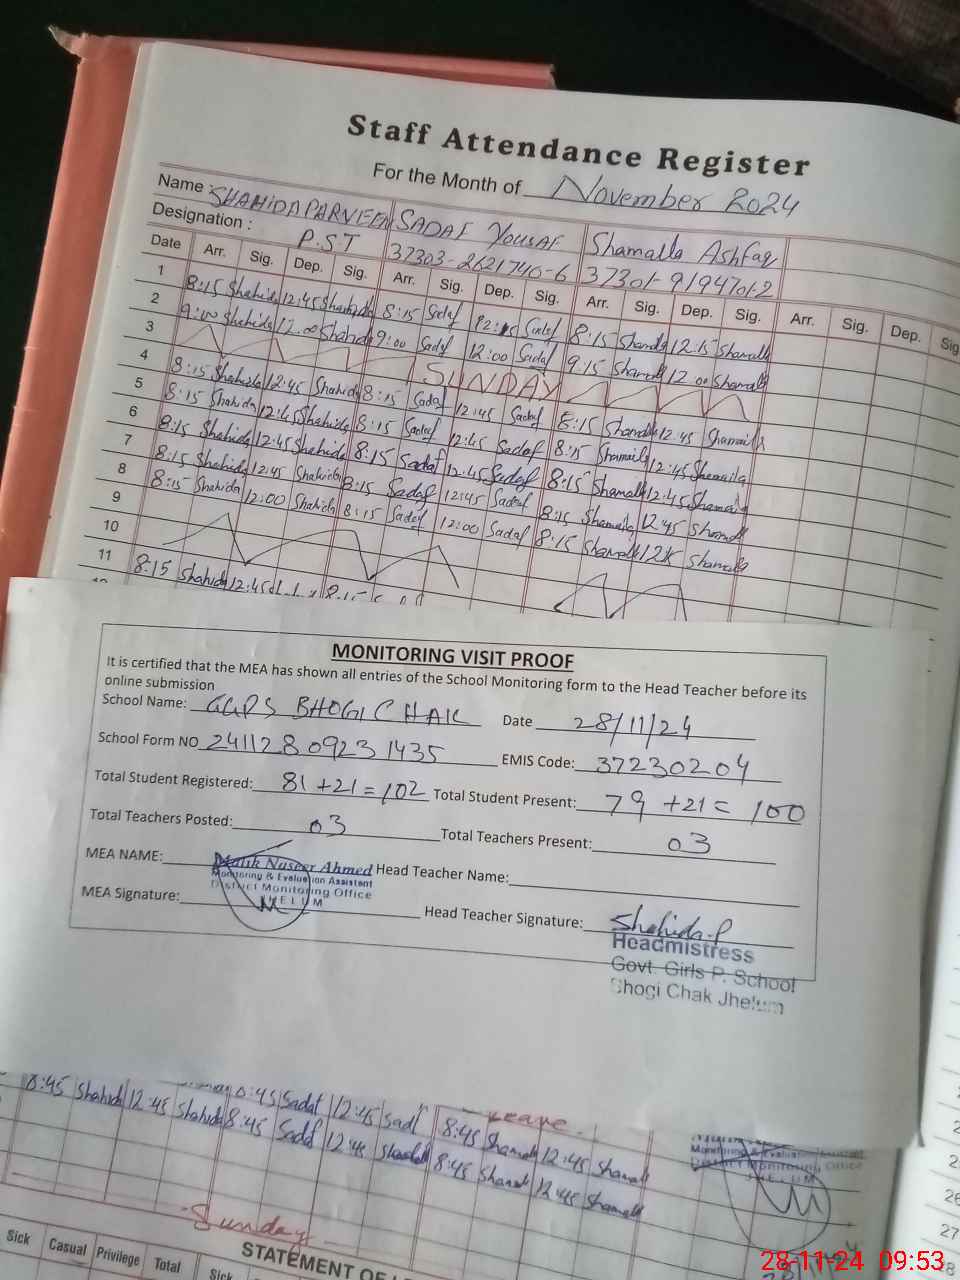 Staff Attendance Register
For the Month of November 2024
Name : SHAHIDA PARVEEN SADAF YOUSAF Shamaila Ashfaq
Designation : P.S.T 37303-2621740-6 37301-9194701-2
Date Arr. Sig. Dep. Sig. Arr. Sig. Dep. Sig. Arr. Sig. Dep. Sig. Arr. Sig. Dep. Sig
1 8:15 Shahida 12:45 Shahida 8:15 Sadaf Sadaf 8:15 12:15
2 9:00 Shahida 12:00 Shahida 9:00 Sadaf 12:00 Sadaf 9:15 12:00
3 SUNDAY
4 8:15 Shahida 12:45 Shahida 8:15 Sadaf 12:45 Sadaf 8:15 12:45 Shamaila
5 8:15 Shahida 12:45 Shahida 8:15 Sadaf 12:45 Sadaf 8:15 Shamaila 12:45 Shamaila
6 8:15 Shahida 12:45 Shahida 8:15 Sadaf 12:45 Sadaf 8:15 12:45
7 8:15 Shahida 12:45 Shahida 8:15 Sadaf 12:45 Sadaf 8:15 Shamaila 12:45
8 8:15 Shahida 12:00 Shahida 8:15 Sadaf 12:00 Sadaf 8:15
9
10
11 8:15 Shahida 12:45
MONITORING VISIT PROOF
It is certified that the MEA has shown all entries of the School Monitoring form to the Head Teacher before its
online submission
School Name: GGPS BHOGI CHAK Date 28/11/24
School Form NO 24112809231435 EMIS Code: 37230204
Total Student Registered: 81 +21 = 102 Total Student Present: 79 +21 = 100
Total Teachers Posted: 03 Total Teachers Present: 03
MEA NAME: Malik Nuseer Ahmed Head Teacher Name:
Monitoring & Evaluation Assistant
District Monitoring Office
JHELUM
MEA Signature: Head Teacher Signature: Shahida.P
Headmistress
Govt. Girls P. School
Bhogi Chak Jhelum
8:45 Sadaf 12:45 Leave.
8:45 Shahida 12:45 Shahida 8:45 Sadaf 12:45 8:45 12:45
8:45 12:45
Monitoring & Evaluation
District Monitoring Office
JHELUM
Sunday
Sick Casual Privilege Total Sick
STATEMENT OF
26
27
28
28-11-24 09:53